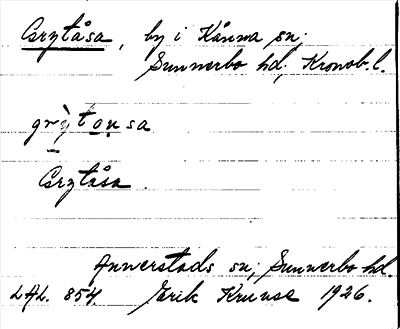 Grytåsa, by i Kånna sn;
Sunnerbo hd, Kronob. l.
grỳtọụsa
Grytåsa.
Annerstads sn; Sunnerbo hd.
LAL. 854. Jarik Krunse 1926.